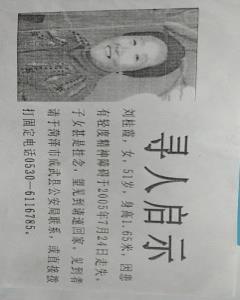 寻人启示
刘桂霞，女，51岁，身高1.65米，因患
有轻度精神障碍于2005年7月24日走失，
子女甚是挂念，望见到请速回家，见到者
请于菏泽市成武县公安局联系，或直接拨
打固定电话0530-6116785。